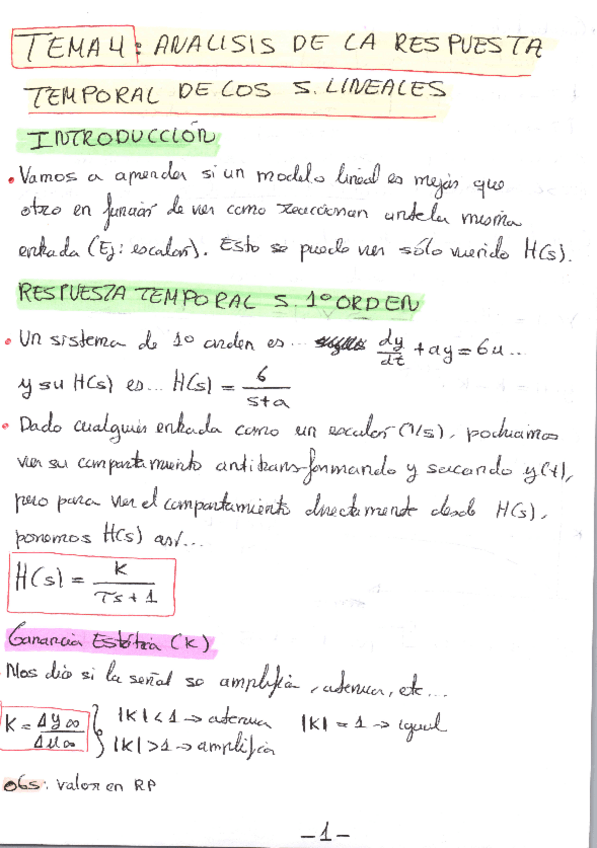 TEMA 4: ANALISIS DE LA RESPUESTA
TEMPORAL DE LOS S. LINEALES
INTRODUCCIÓN
• Vamos a aprender si un modelo lineal es mejor que
otro en función de ver como reaccionan ante la misma
entrada (Ej: escalon). Esto se puede ver sólo viendo H(s).
RESPUESTA TEMPORAL S. 1º ORDEN
• Un sistema de 1º orden es... dy/dt + ay = bu...
y su H(s) es... H(s) = b/(s+a)
• Dado cualquier entrada como un escalon (1/s), podriamos
ver su comportamiento antitransformando y sacando y(t),
pero para ver el comportamiento directamente desde H(s),
ponemos H(s) así...
H(s) = K/(τs + 1)
Ganancia Estática (K)
Nos dice si la señal se amplifica, atenua, etc...
K = Δy∞/Δu∞ } |K| < 1 → atenua |K| = 1 → igual
|K| > 1 → amplifica
obs: valor en RP
-1-